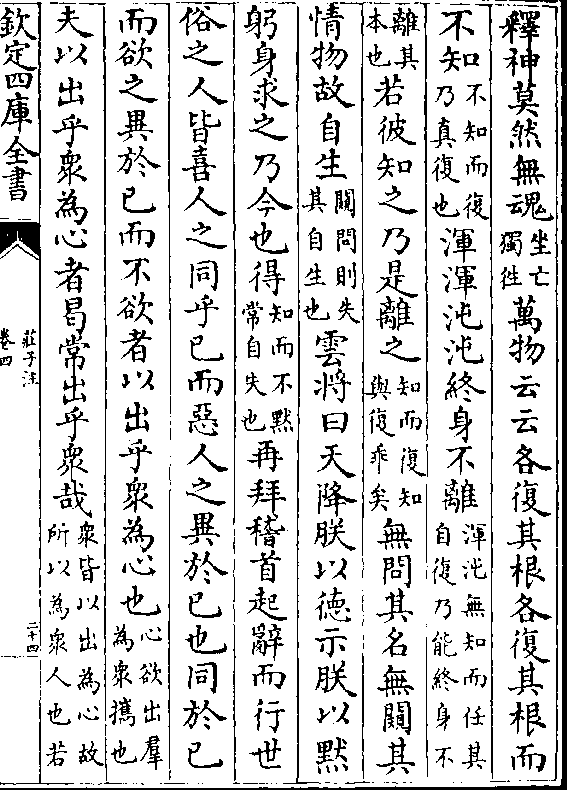 釋神莫然無魂坐亡獨徃萬物云云各復其根各復其根而
不知不知而復乃真復也渾渾沌沌終身不離渾沌無知而任其自復乃能終身不
離其本也若彼知之乃是離之知而復知與復乖矣無問其名無闚其
情物故自生闚問則失其自生也雲將曰天降朕以德示朕以黙
躬身求之乃今也得知而不黙常自失也再拜稽首起辭而行世
俗之人皆喜人之同乎已而惡人之異於已也同於已
而欲之異於已而不欲者以出乎衆為心也心欲出羣為衆攜也
夫以出乎衆為心者曷常出乎衆哉衆皆以出為心故所以為衆人也若
欽定四庫全書
莊子注
卷四
二十四